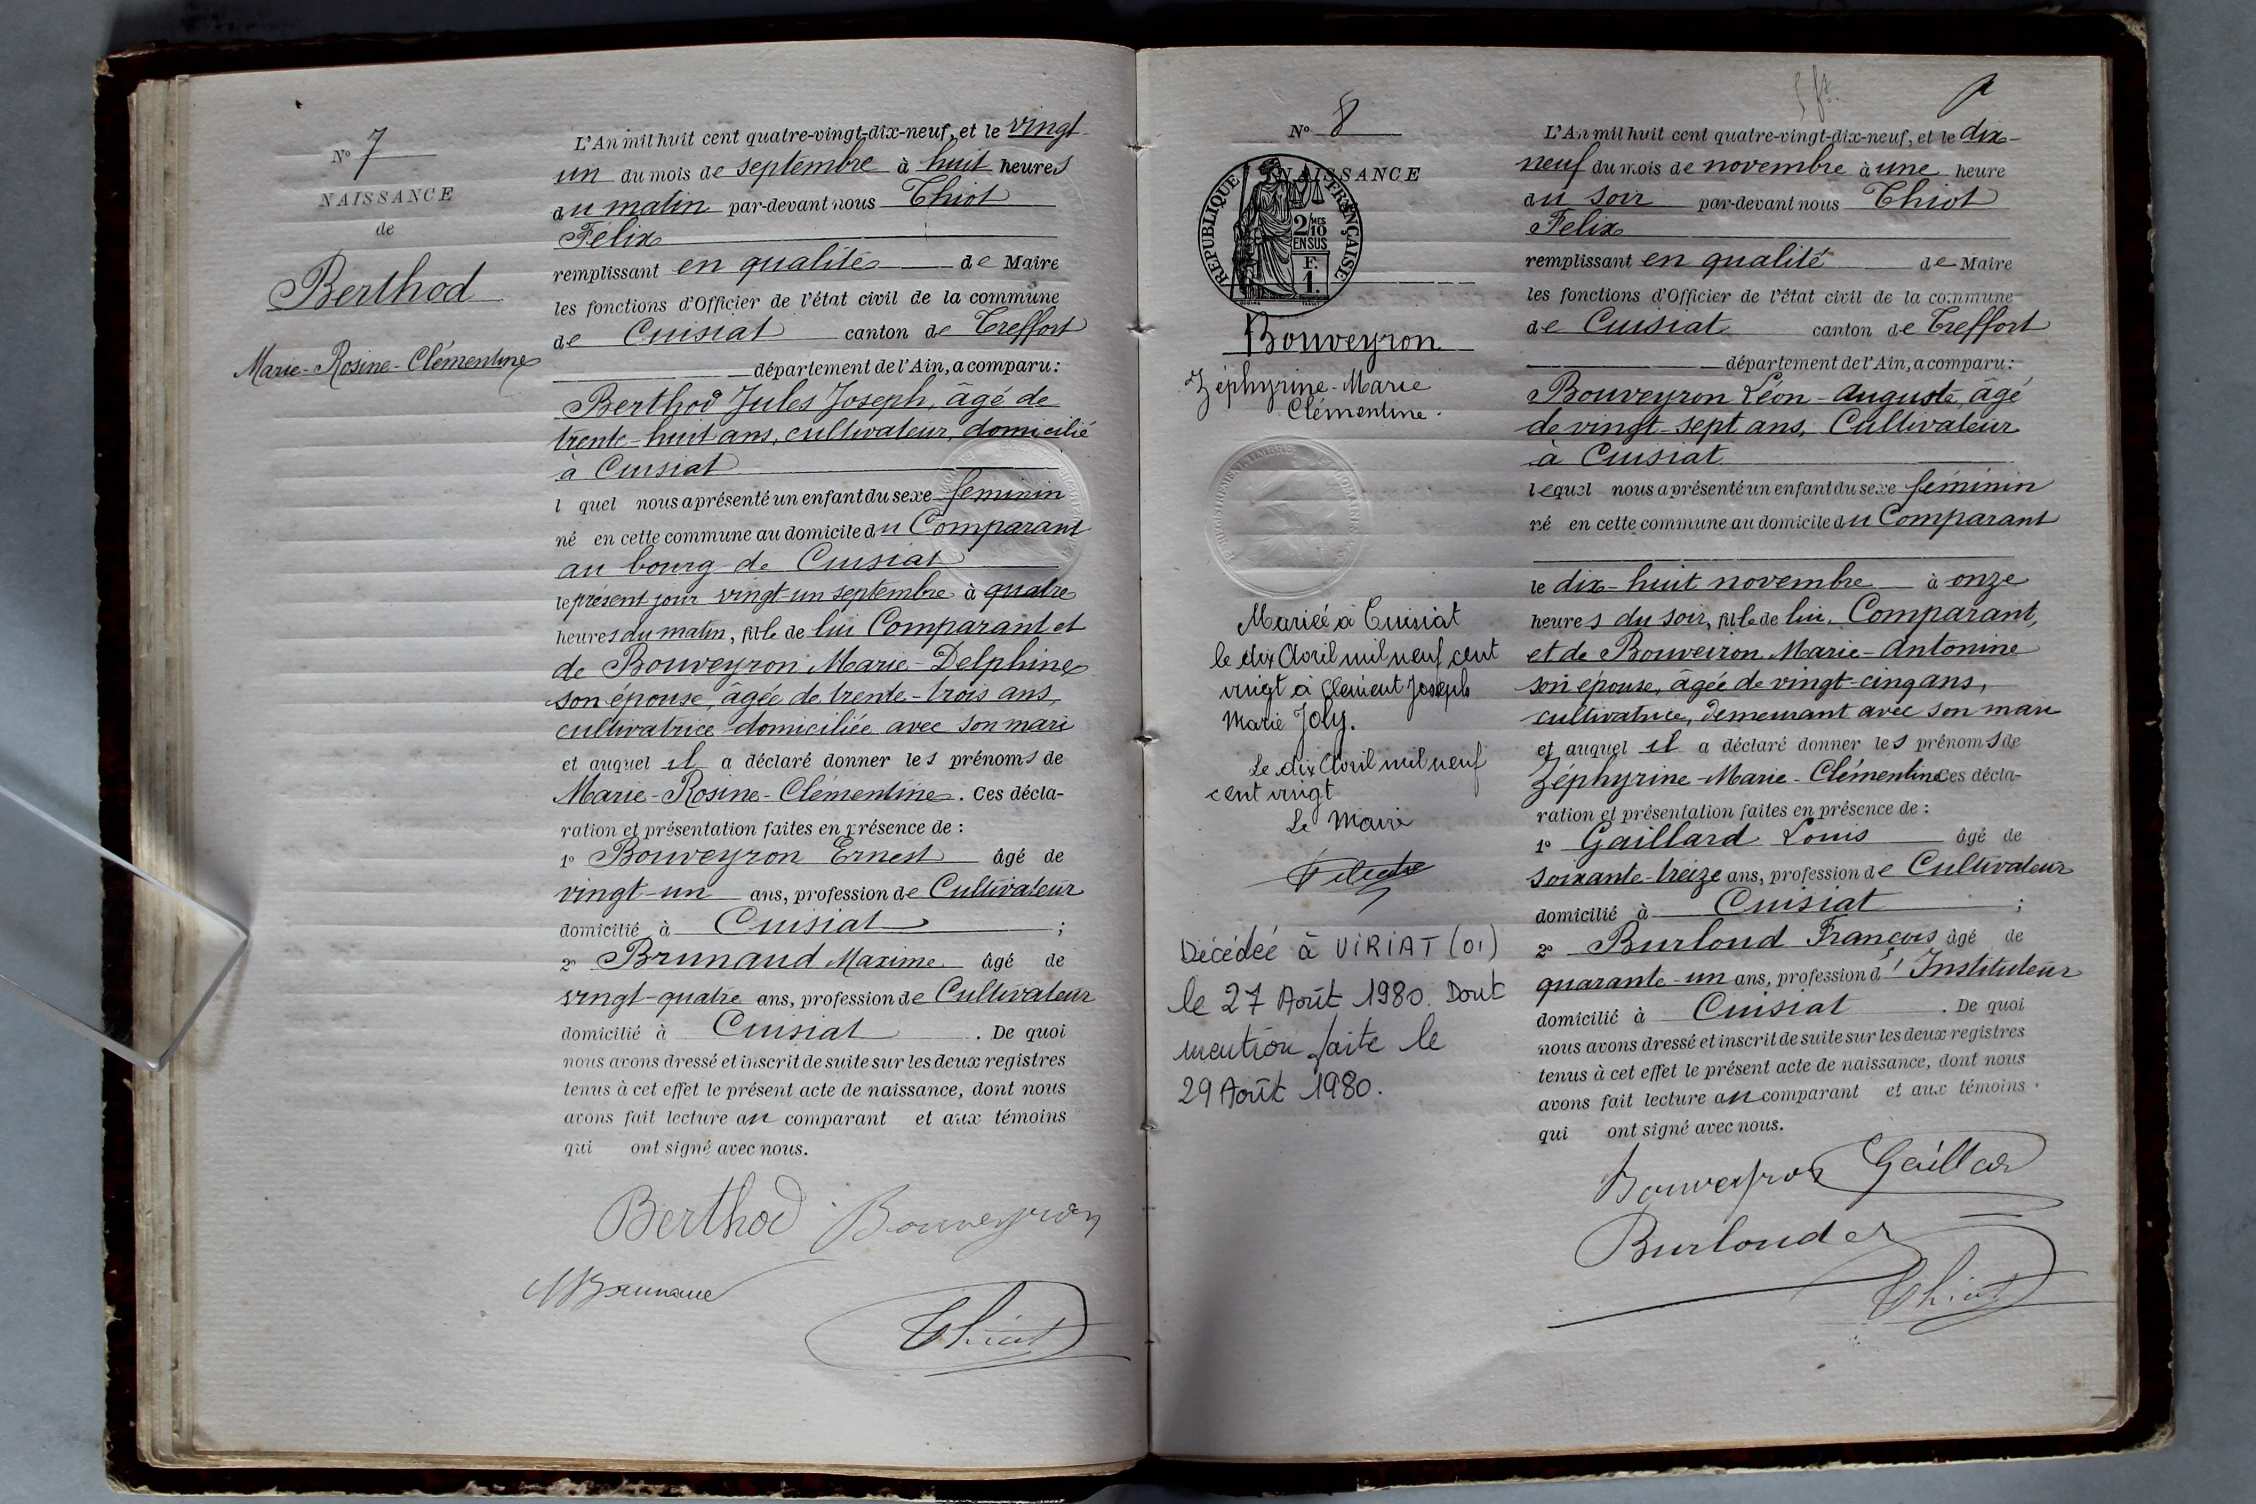 N° 7
NAISSANCE
de
Berthod
Marie-Rosine-Clémentine
L'An mil huit cent quatre-vingt-dix-neuf, et le vingt-
un du mois de septembre à huit heures
du matin par-devant nous Thiot
Félix
remplissant en qualité de Maire
les fonctions d'Officier de l'état civil de la commune
de Cuisiat canton de Treffort
département de l'Ain, a comparu:
Berthod Jules Joseph, âgé de
trente-huit ans, cultivateur, domicilié
à Cuisiat
l quel nous a présenté un enfant du sexe féminin
né en cette commune au domicile du Comparant
au bourg de Cuisiat
le présent jour vingt-un septembre à quatre
heures du matin, fille de lui Comparant et
de Bouveyron Marie-Delphine
son épouse, âgée de trente-trois ans,
cultivatrice domiciliée avec son mari
et auquel il a déclaré donner les prénoms de
Marie-Rosine-Clémentine. Ces décla-
ration et présentation faites en présence de :
1° Bouveyron Ernest âgé de
vingt-un ans, profession de Cultivateur
domicilié à Cuisiat ;
2° Brunaud Maxime âgé de
vingt-quatre ans, profession de Cultivateur
domicilié à Cuisiat . De quoi
nous avons dressé et inscrit de suite sur les deux registres
tenus à cet effet le présent acte de naissance, dont nous
avons fait lecture au comparant et aux témoins
qui ont signé avec nous.
Berthod Bouveyron
MBrunaud
Thiot
N° 8
NAISSANCE
REPUBLIQUE FRANÇAISE
2/10 MES
EN SUS
F.
1.
Bouveyron
Zéphyrine-Marie
Clémentine.
Mariée à Cuisiat
le dix Avril mil neuf cent
vingt à Clément Joseph
Marie Joly.
Le dix Avril mil neuf
cent vingt
Le Maire
Décédée à VIRIAT (01)
le 27 Août 1980. Dont
mention faite le
29 Août 1980.
L'An mil huit cent quatre-vingt-dix-neuf, et le dix-
neuf du mois de novembre à une heure
du soir par-devant nous Thiot
Félix
remplissant en qualité de Maire
les fonctions d'Officier de l'état civil de la commune
de Cuisiat canton de Treffort
département de l'Ain, a comparu:
Bouveyron Léon-Auguste, âgé
de vingt-sept ans, Cultivateur
à Cuisiat
lequel nous a présenté un enfant du sexe féminin
né en cette commune au domicile du Comparant
le dix-huit novembre à onze
heures du soir, fille de lui, Comparant,
et de Bouveiron Marie-Antonine
son épouse, âgée de vingt-cinq ans,
cultivatrice, demeurant avec son mari
et auquel il a déclaré donner les prénoms de
Zéphyrine-Marie-Clémentine Ces décla-
ration et présentation faites en présence de :
1° Gaillard Louis âgé de
soixante-treize ans, profession de Cultivateur
domicilié à Cuisiat ;
2° Burloud François âgé de
quarante-un ans, profession d'Instituteur
domicilié à Cuisiat . De quoi
nous avons dressé et inscrit de suite sur les deux registres
tenus à cet effet le présent acte de naissance, dont nous
avons fait lecture au comparant et aux témoins
qui ont signé avec nous.
Bouveyron Gaillard
Burloud
Thiot